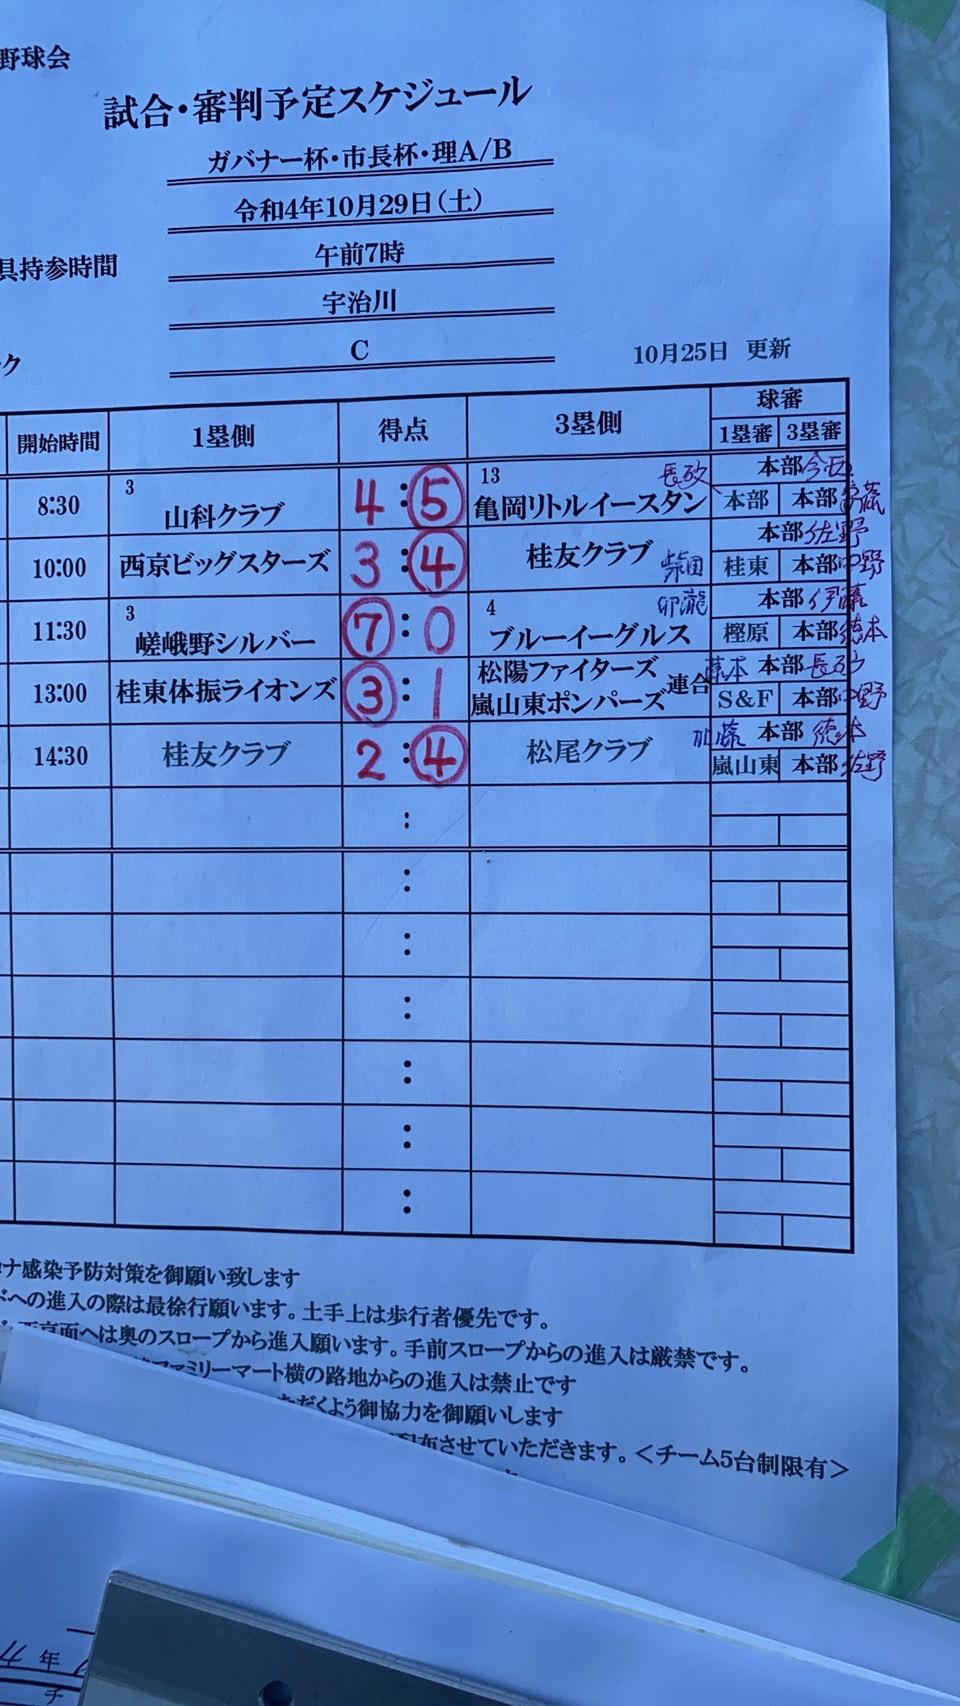 野球会
試合・審判予定スケジュール
ガバナー杯・市長杯・理A/B
令和4年10月29日(土)
具持参時間 午前7時
宇治川
ク C
10月25日 更新
開始時間 1塁側 得点 3塁側 球審
1塁審 3塁審
8:30 3 山科クラブ 4:5 13 亀岡リトルイースタン 本部
本部 本部
10:00 西京ビッグスターズ 3:4 桂友クラブ 柴田 本部 佐野
桂東 本部 中野
11:30 3 嵯峨野シルバー 7:0 4 ブルーイーグルス 本部 伊藤
樫原 本部 徳本
13:00 桂東体振ライオンズ 3:1 松陽ファイターズ 嵐山東ポンパーズ 連合 本部
S&F 本部 中野
14:30 桂友クラブ 2:4 松尾クラブ 加藤 本部 徳本
嵐山東 本部 佐野
:
:
:
:
:
:
:
ナ感染予防対策を御願い致します
ドへの進入の際は最徐行願います。土手上は歩行者優先です。
面へは奥のスロープから進入願います。手前スロープからの進入は厳禁です。
ファミリーマート横の路地からの進入は禁止です
ただくよう御協力を御願いします
配布させていただきます。<チーム5台制限有>
年
チ